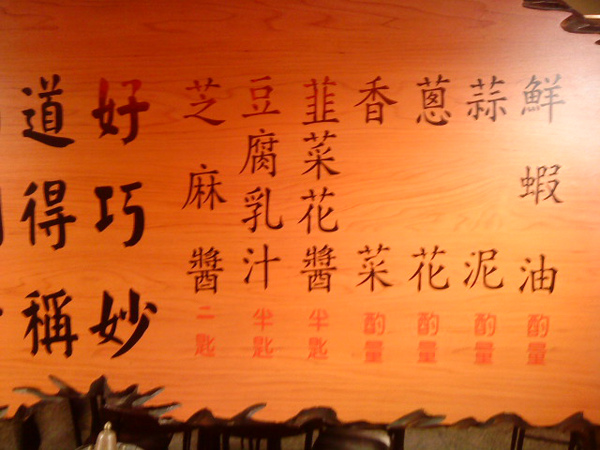 鮮蝦油酌量
蒜泥酌量
蔥花酌量
香菜酌量
韭菜花醬半匙
豆腐乳汁半匙
芝麻醬二匙
好巧妙
道得稱